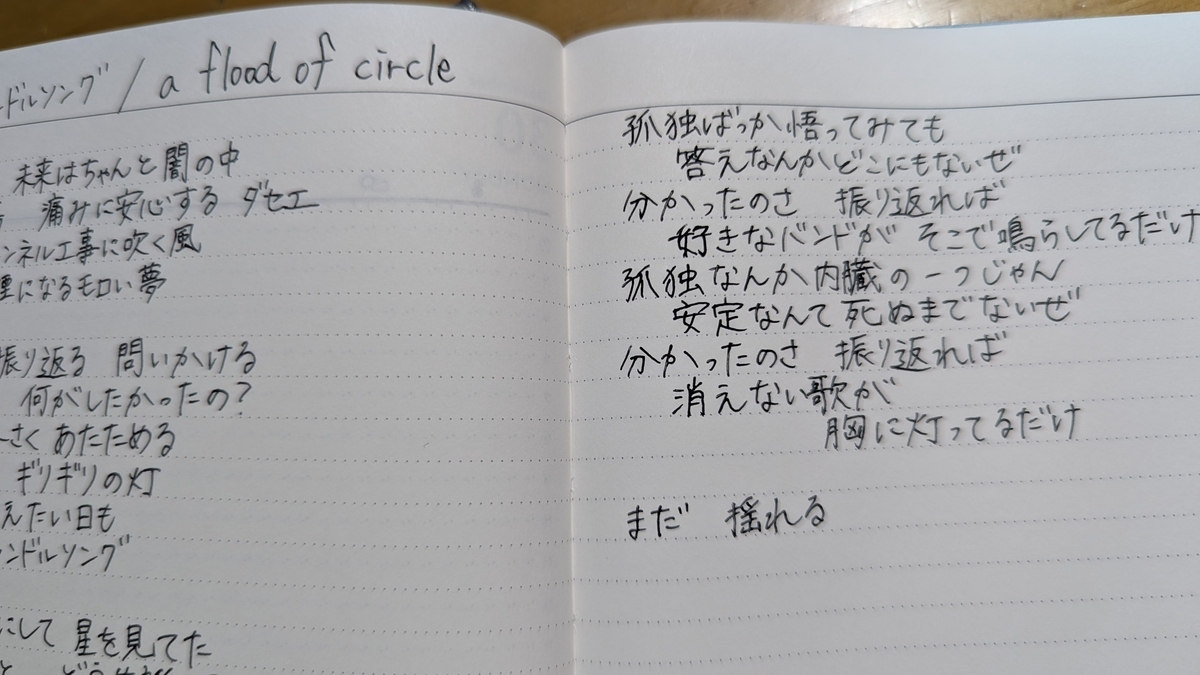 ドルソング / a flood of circle
未来はちゃんと闇の中
痛みに安心する ダセエ
ンネル工事に吹く風
になるモロい夢
振り返る 問いかける
何がしたかったの?
さく あたためる
ギリギリの灯
えたい日も
ンドルソング
にして 星を見てた
孤独ばっか悟ってみても
答えなんかどこにもないぜ
分かったのさ 振り返れば
好きなバンドが そこで鳴らしてるだけ
孤独なんか内臓の一つじゃん
安定なんて死ぬまでないぜ
分かったのさ 振り返れば
消えない歌が
胸に灯ってるだけ
まだ 揺れる